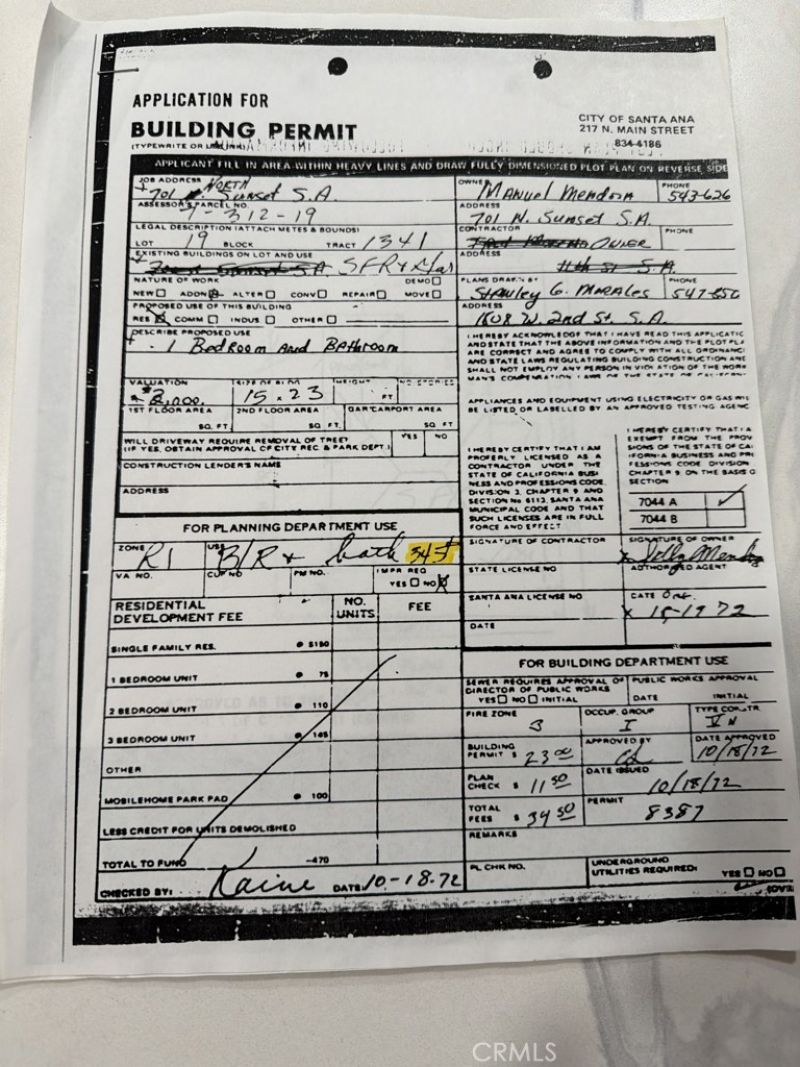 APPLICATION FOR
BUILDING PERMIT
(TYPEWRITE OR
CITY OF SANTA ANA
217 N. MAIN STREET
834-4186
APPLICANT FILL IN AREA WITHIN HEAVY LINES AND DRAW FULLY DIMENSIONED PLOT PLAN ON REVERSE SIDE
JOB ADDRESS NORTH
701 N. Sunset S.A.
ASSESSOR'S PARCEL NO.
7-312-19
LEGAL DESCRIPTION (ATTACH METES & BOUNDS)
LOT 19 BLOCK TRACT 1341
EXISTING BUILDINGS ON LOT AND USE
SFR +
NATURE OF WORK DEMO
NEW ADDN ALTER CONV REPAIR MOVE
PROPOSED USE OF THIS BUILDING
RES COMM INDUS OTHER
DESCRIBE PROPOSED USE
1 Bedroom and Bathroom
VALUATION SIZE OF BLDG HEIGHT NO STORIES
15 x 23 FT
1ST FLOOR AREA 2ND FLOOR AREA GAR/CARPORT AREA
SQ. FT. SQ FT. SQ FT
WILL DRIVEWAY REQUIRE REMOVAL OF TREE? YES NO
(IF YES, OBTAIN APPROVAL OF CITY REC. & PARK DEPT.)
CONSTRUCTION LENDER'S NAME
ADDRESS
OWNER Manuel Mendoza PHONE 543-626
ADDRESS
701 N. Sunset S.A.
CONTRACTOR PHONE
OWNER
ADDRESS
11th St S.A.
PLANS DRAWN BY
Stanley G. Morales 547-850
ADDRESS
1608 W. 2nd St. S.A.
I HEREBY ACKNOWLEDGE THAT I HAVE READ THIS APPLICATIC
AND STATE THAT THE ABOVE INFORMATION AND THE PLOT PL
ARE CORRECT AND AGREE TO COMPLY WITH ALL ORDINANC
AND STATE LAWS REGULATING BUILDING CONSTRUCTION AN
SHALL NOT EMPLOY ANY PERSON IN VIOLATION OF THE WORK
MAN'S COMPENSATION LAWS OF THE STATE OF CALIFORNI
APPLIANCES AND EQUIPMENT USING ELECTRICITY OR GAS WI
BE LISTED OR LABELLED BY AN APPROVED TESTING AGENC
I HEREBY CERTIFY THAT I AM
PROPERLY LICENSED AS A
CONTRACTOR UNDER THE
STATE OF CALIFORNIA BUSI
NESS AND PROFESSIONS CODE,
DIVISION 3, CHAPTER 9 AND
SECTION No 6113, SANTA ANA
MUNICIPAL CODE AND THAT
SUCH LICENSES ARE IN FULL
FORCE AND EFFECT
I HEREBY CERTIFY THAT I A
EXEMPT FROM THE PROV
SIONS OF THE STATE OF CA
IFORNIA BUSINESS AND PR
FESSIONS CODE DIVISION
CHAPTER 9 ON THE BASIS O
SECTION
7044 A
7044 B
SIGNATURE OF CONTRACTOR
SIGNATURE OF OWNER
AUTHORIZED AGENT
STATE LICENSE NO
SANTA ANA LICENSE NO
DATE
FOR PLANNING DEPARTMENT USE
ZONE R1 USE B/R + bath 345
VA NO. CUP NO PM NO. IMPR REQ
YES NO
RESIDENTIAL
DEVELOPMENT FEE
NO.
UNITS
FEE
SINGLE FAMILY RES. @ $180
1 BEDROOM UNIT @ 75
2 BEDROOM UNIT @ 110
3 BEDROOM UNIT @ 145
OTHER
MOBILEHOME PARK PAD @ 100
LESS CREDIT FOR UNITS DEMOLISHED
TOTAL TO FUND -470
CHECKED BY: Kaine DATE: 10-18-72
FOR BUILDING DEPARTMENT USE
SEWER REQUIRES APPROVAL OF
DIRECTOR OF PUBLIC WORKS
YES NO INITIAL
PUBLIC WORKS APPROVAL
DATE INITIAL
FIRE ZONE OCCUP. GROUP TYPE CONSTR.
3 I V N
BUILDING
PERMIT $ 23 00
APPROVED BY DATE APPROVED
10/18/72
PLAN
CHECK $ 11 50
DATE ISSUED
10/18/72
TOTAL
FEES $ 34 50
PERMIT
8387
REMARKS
PL CHK NO.
UNDERGROUND
UTILITIES REQUIRED: YES NO
CRMLS